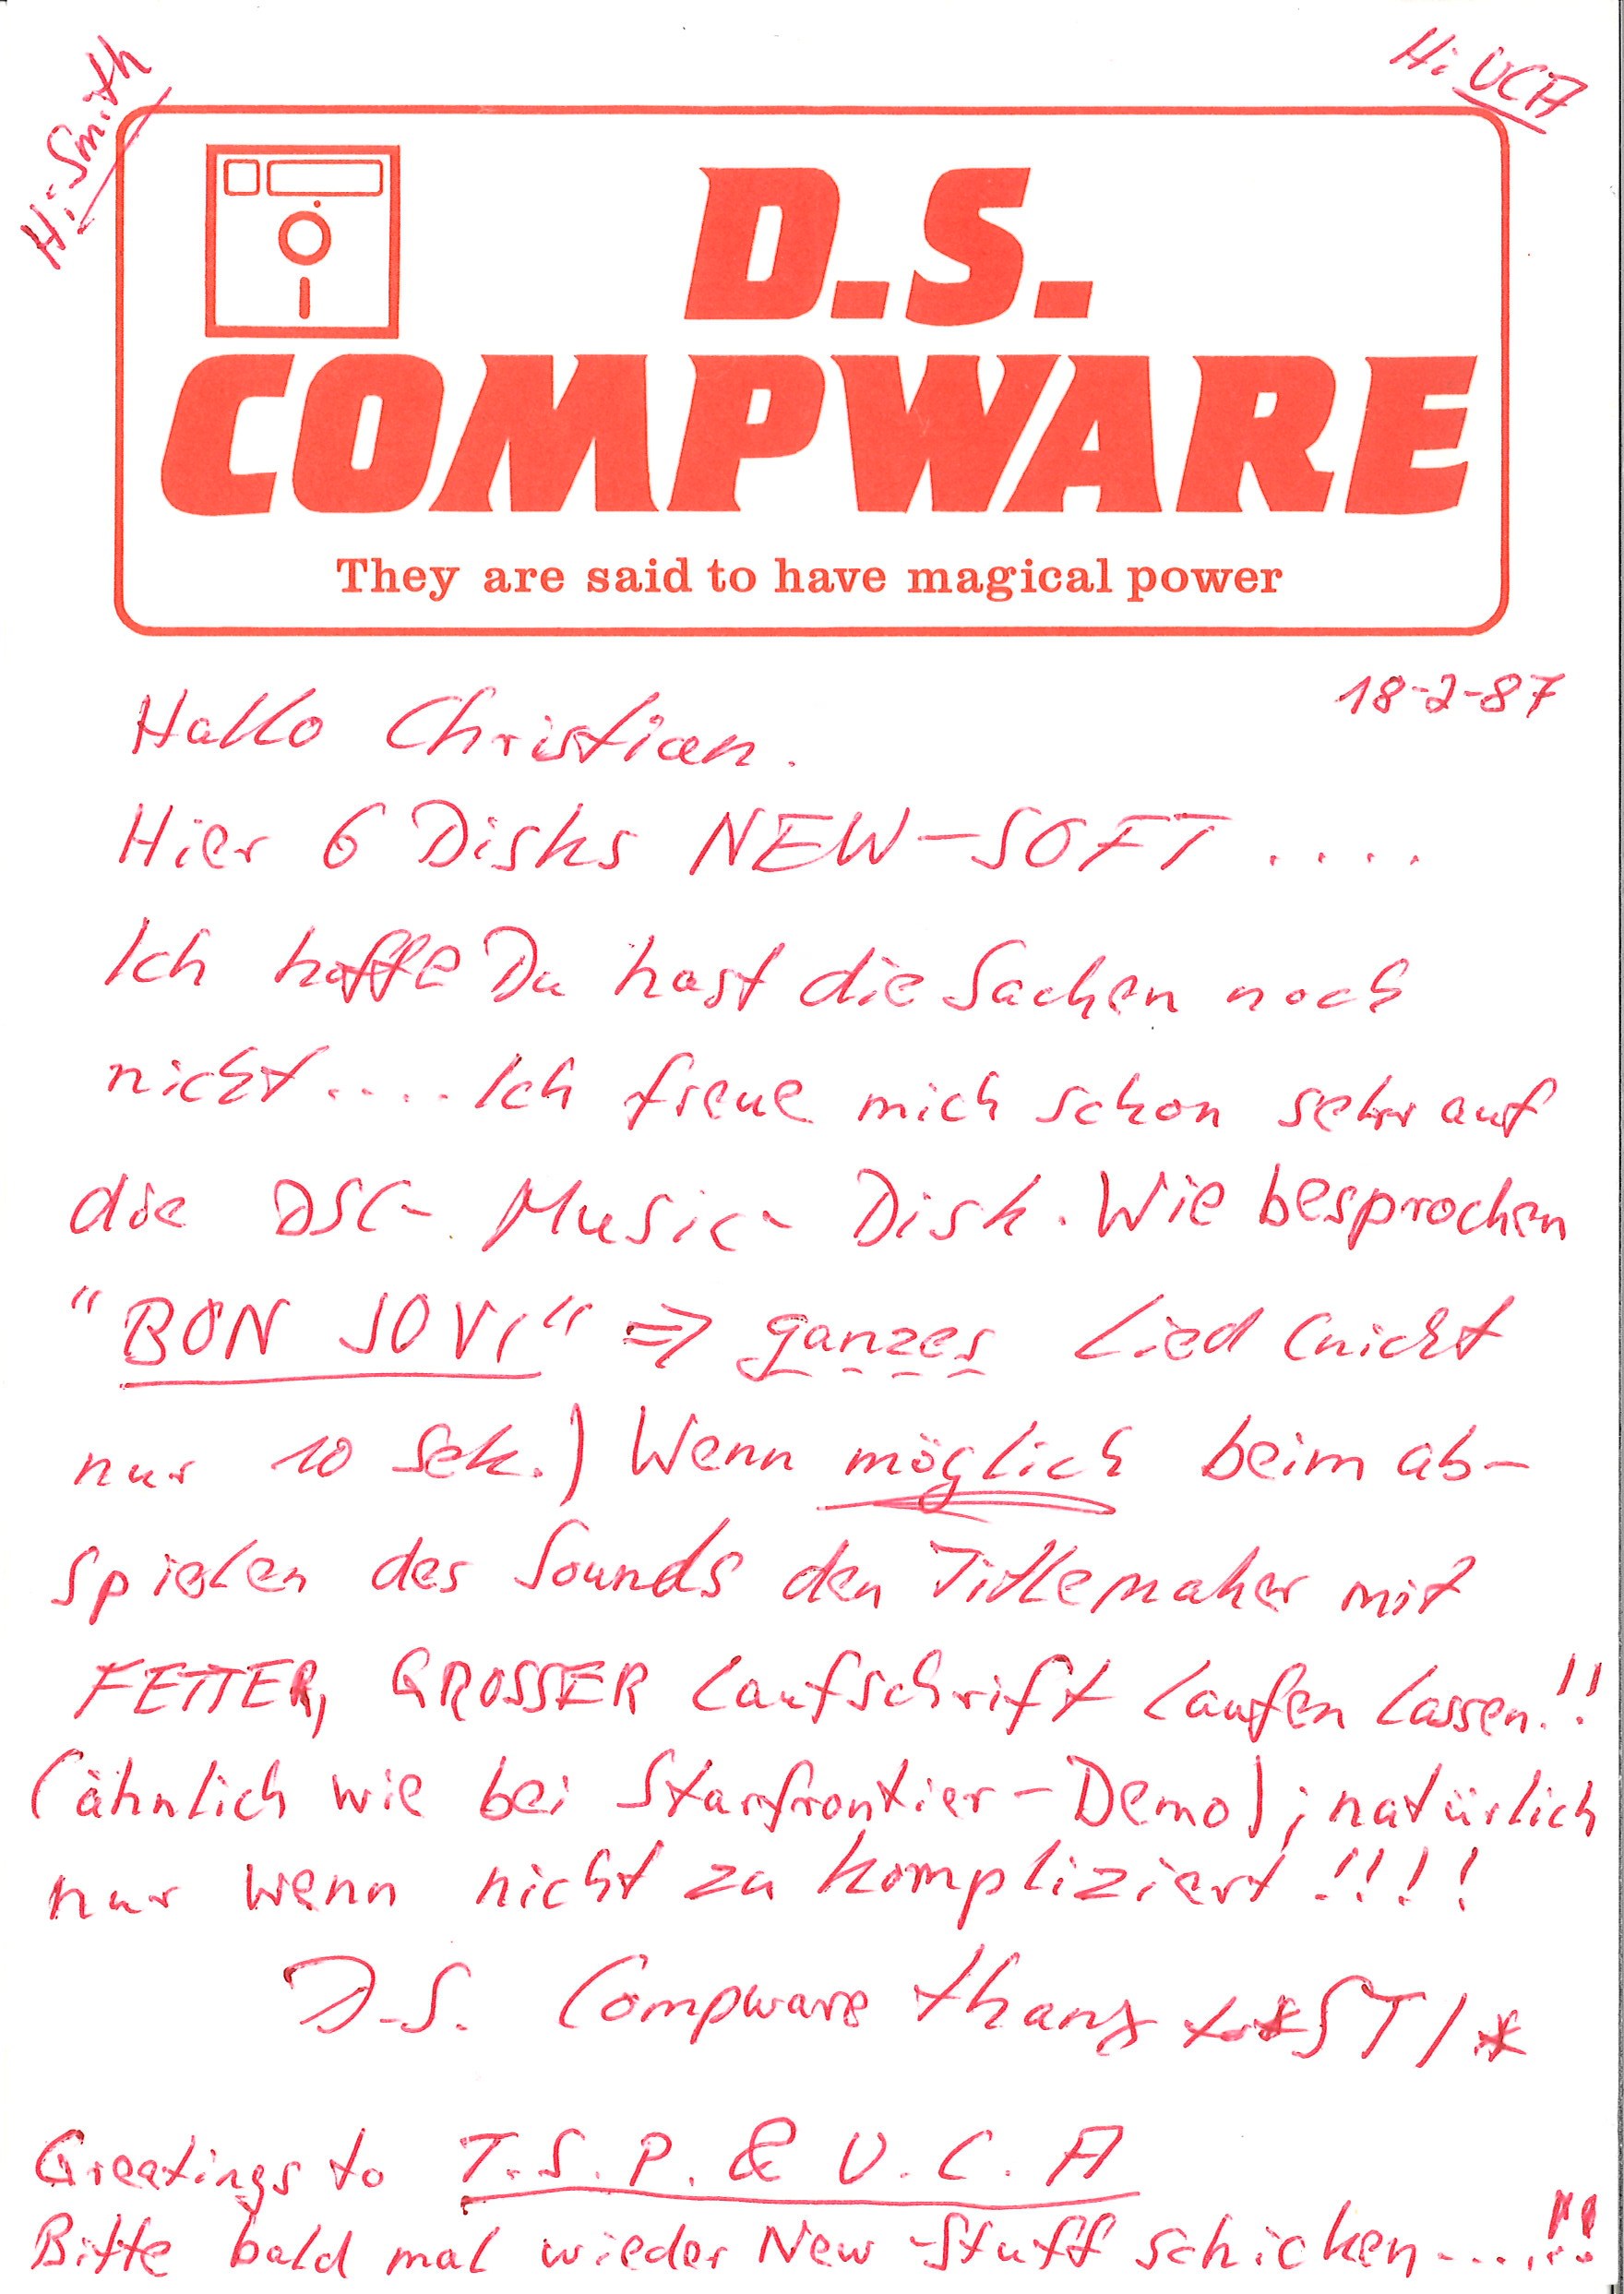 Hi Smith
Hi UCA
D.S.
COMPWARE
They are said to have magical power
18-2-87
Hallo Christian.
Hier 6 Disks NEW-SOFT ....
Ich hoffe Du hast die Sachen noch
nicht.... Ich freue mich schon sehr auf
die DSC- Music- Disk. Wie besprochen
"BON JOVI" => ganzes Lied (nicht
nur 10 sek.) Wenn möglich beim ab-
spielen des Sounds den Titlemaker mit
FETTER, GROSSER Laufschrift laufen lassen!!
(ähnlich wie bei Starfrontier-Demo); natürlich
nur wenn nicht zu kompliziert!!!!
D.S. Compware thanx
Greetings to T.S.P. & U.C.A
Bitte bald mal wieder New-Stuff schicken....!!